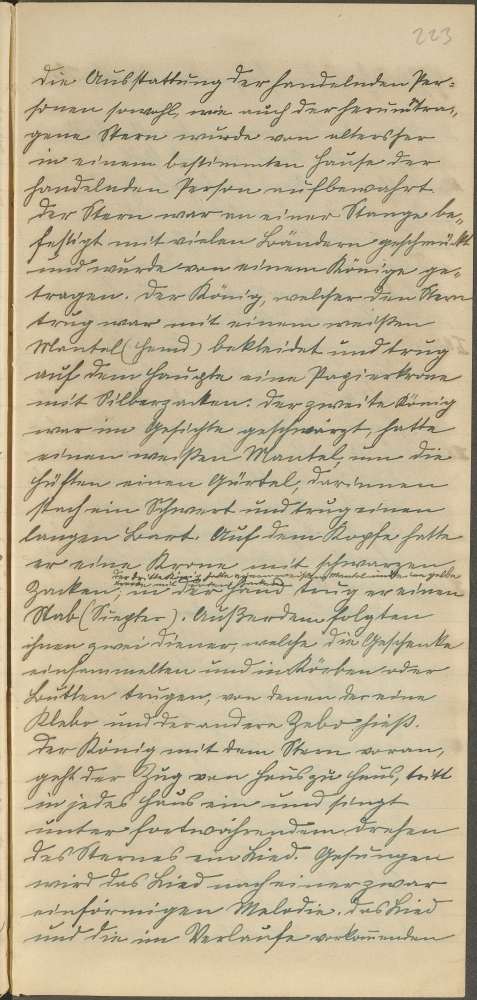 223
die Ausstattung der handelnden Per=
sonen sowohl, wie auch der herumgetra=
gene Stern wurde von altersher
in einem bestimmten Hause der
handelnden Person aufbewahrt.
Der Stern war an einer Stange be=
festigt mit vielen Bändern geschmückt
und wurde von einem Könige ge=
tragen. Der König, welcher den Stern
trug war mit einem weißen
Mantel (Hemd) bekleidet und trug
auf dem Haupte eine Papierkrone
mit Silberzacken. Der zweite König
war im Gesichte geschwärzt, hatte
einen weißen Mantel, um die
Hüften einen Gürtel, darinnen
stach ein Schwert und trug einen
langen Bart. Auf dem Kopfe hatte
er eine Krone mit schwarzen
Der dritte König hatte einen weißen Mantel
Zacken, in der Hand trug er einen
Stab (Szepter). Außerdem folgten
ihnen zwei Diener, welche die Geschenke
einsammelten und in Körben oder
Butten trugen, von denen der eine
Klebr und der andere Zebo hieß.
Der König mit dem Stern voran,
geht der Zug von Haus zu Haus, tritt
in jedes Haus ein und singt
unter fortwährendem Drehen
des Sternes ein Lied. Gesungen
wird das Lied nach einer zwar
einförmigen Melodie. Das Lied
und die im Verlaufe vorkommenden